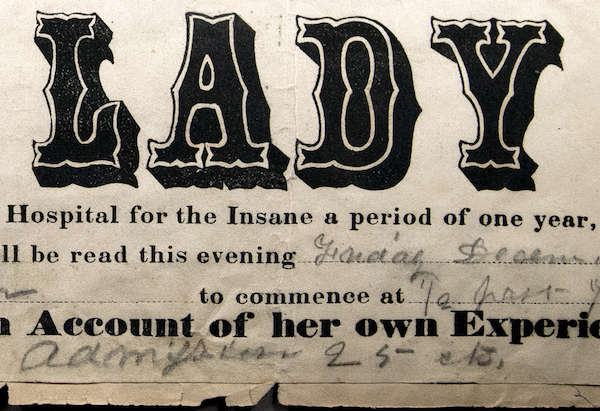 LADY
Hospital for the Insane a period of one year,
ll be read this evening Friday Decem
to commence at ½ past
n Account of her own Experie
Admission 25 cts.